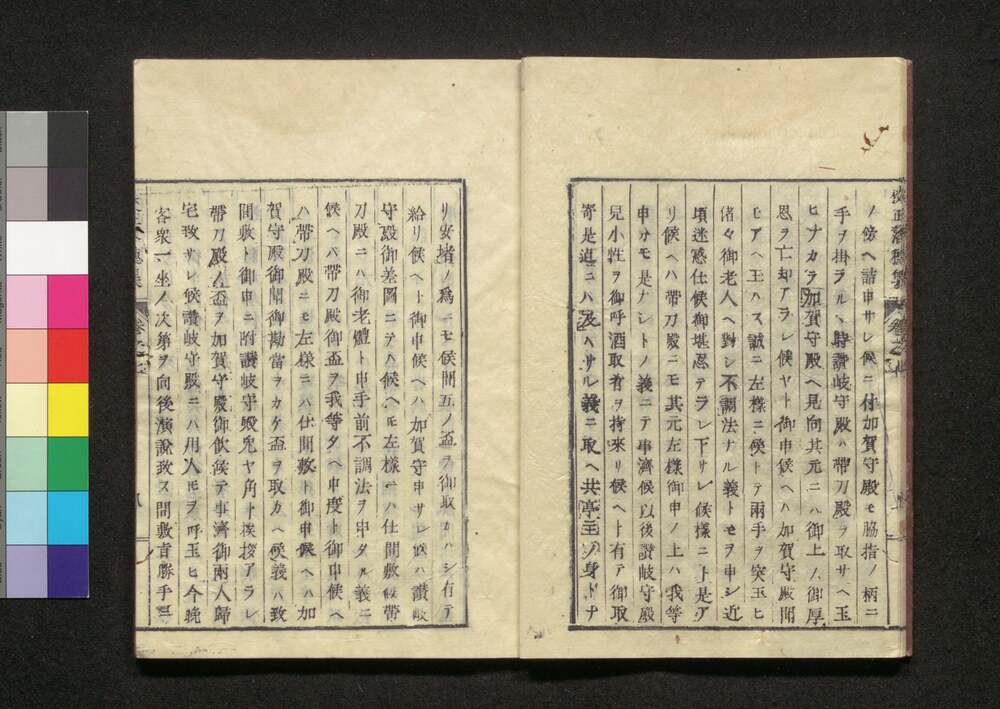 ノ傍ヘ詰申サレ候ニ付加賀守殿モ脇指ノ柄ニ
手ヲ掛ラルヽ時讃岐守殿ハ帶刀殿ヲ取サヘ玉
ヒナカラ加賀守殿ヘ見向其元ニハ御上ノ御厚
恩ヲ亡却アラレ候ヤト御申候ヘハ加賀守殿聞
モアヘ玉ハス誠ニ左様ニ候トテ兩手ヲ突玉ヒ
偖々御老人ヘ對シ不調法ナル義トモヲ申シ近
頃迷惑仕候御堪忍テラレ下サレ候様ニト是ア
リ候ヘハ帶刀殿ニモ其元左様御申ノ上ハ我等
申分モ是ナシトノ義ニテ事濟候以後讃岐守殿
見小性ヲ御呼酒取肴ヲ持來リ候ヘト有テ御取
寄是迄ニハ及ヘサル義ニ取ヘ共亭主ノ身トナ
リ安堵ノ爲ニモ候間互ノ盃ヲ御取カハシ有テ
給リ候ヘト御申候ヘハ加賀守申サレ候ハ讃岐
守殿御差圖ニテハ候ヘモ左樣ニハ仕間敷候帶
刀殿ニハ御老體ト申手前不調法ヲ申タル義ニ
候ヘハ帶刀殿御盃ヲ我等タヘ申度ト御申候ヘ
ハ帶刀殿ニモ左樣ニハ仕間敷ト御申候ヘハ加
賀守殿御聞御勘當ヲカケ盃ヲ取カヘ候義ハ致
間敷ト御申ニ附讃岐守殿兎ヤ角ト挨拶アラレ
帶刀殿ノ盃ヲ加賀守殿御飲候テ事濟御兩人歸
宅致サレ候讃岐守殿ニハ用人モヲ呼玉ヒ今晩
客衆一坐ノ次第ヲ向後演說致ス間敷旨勝手